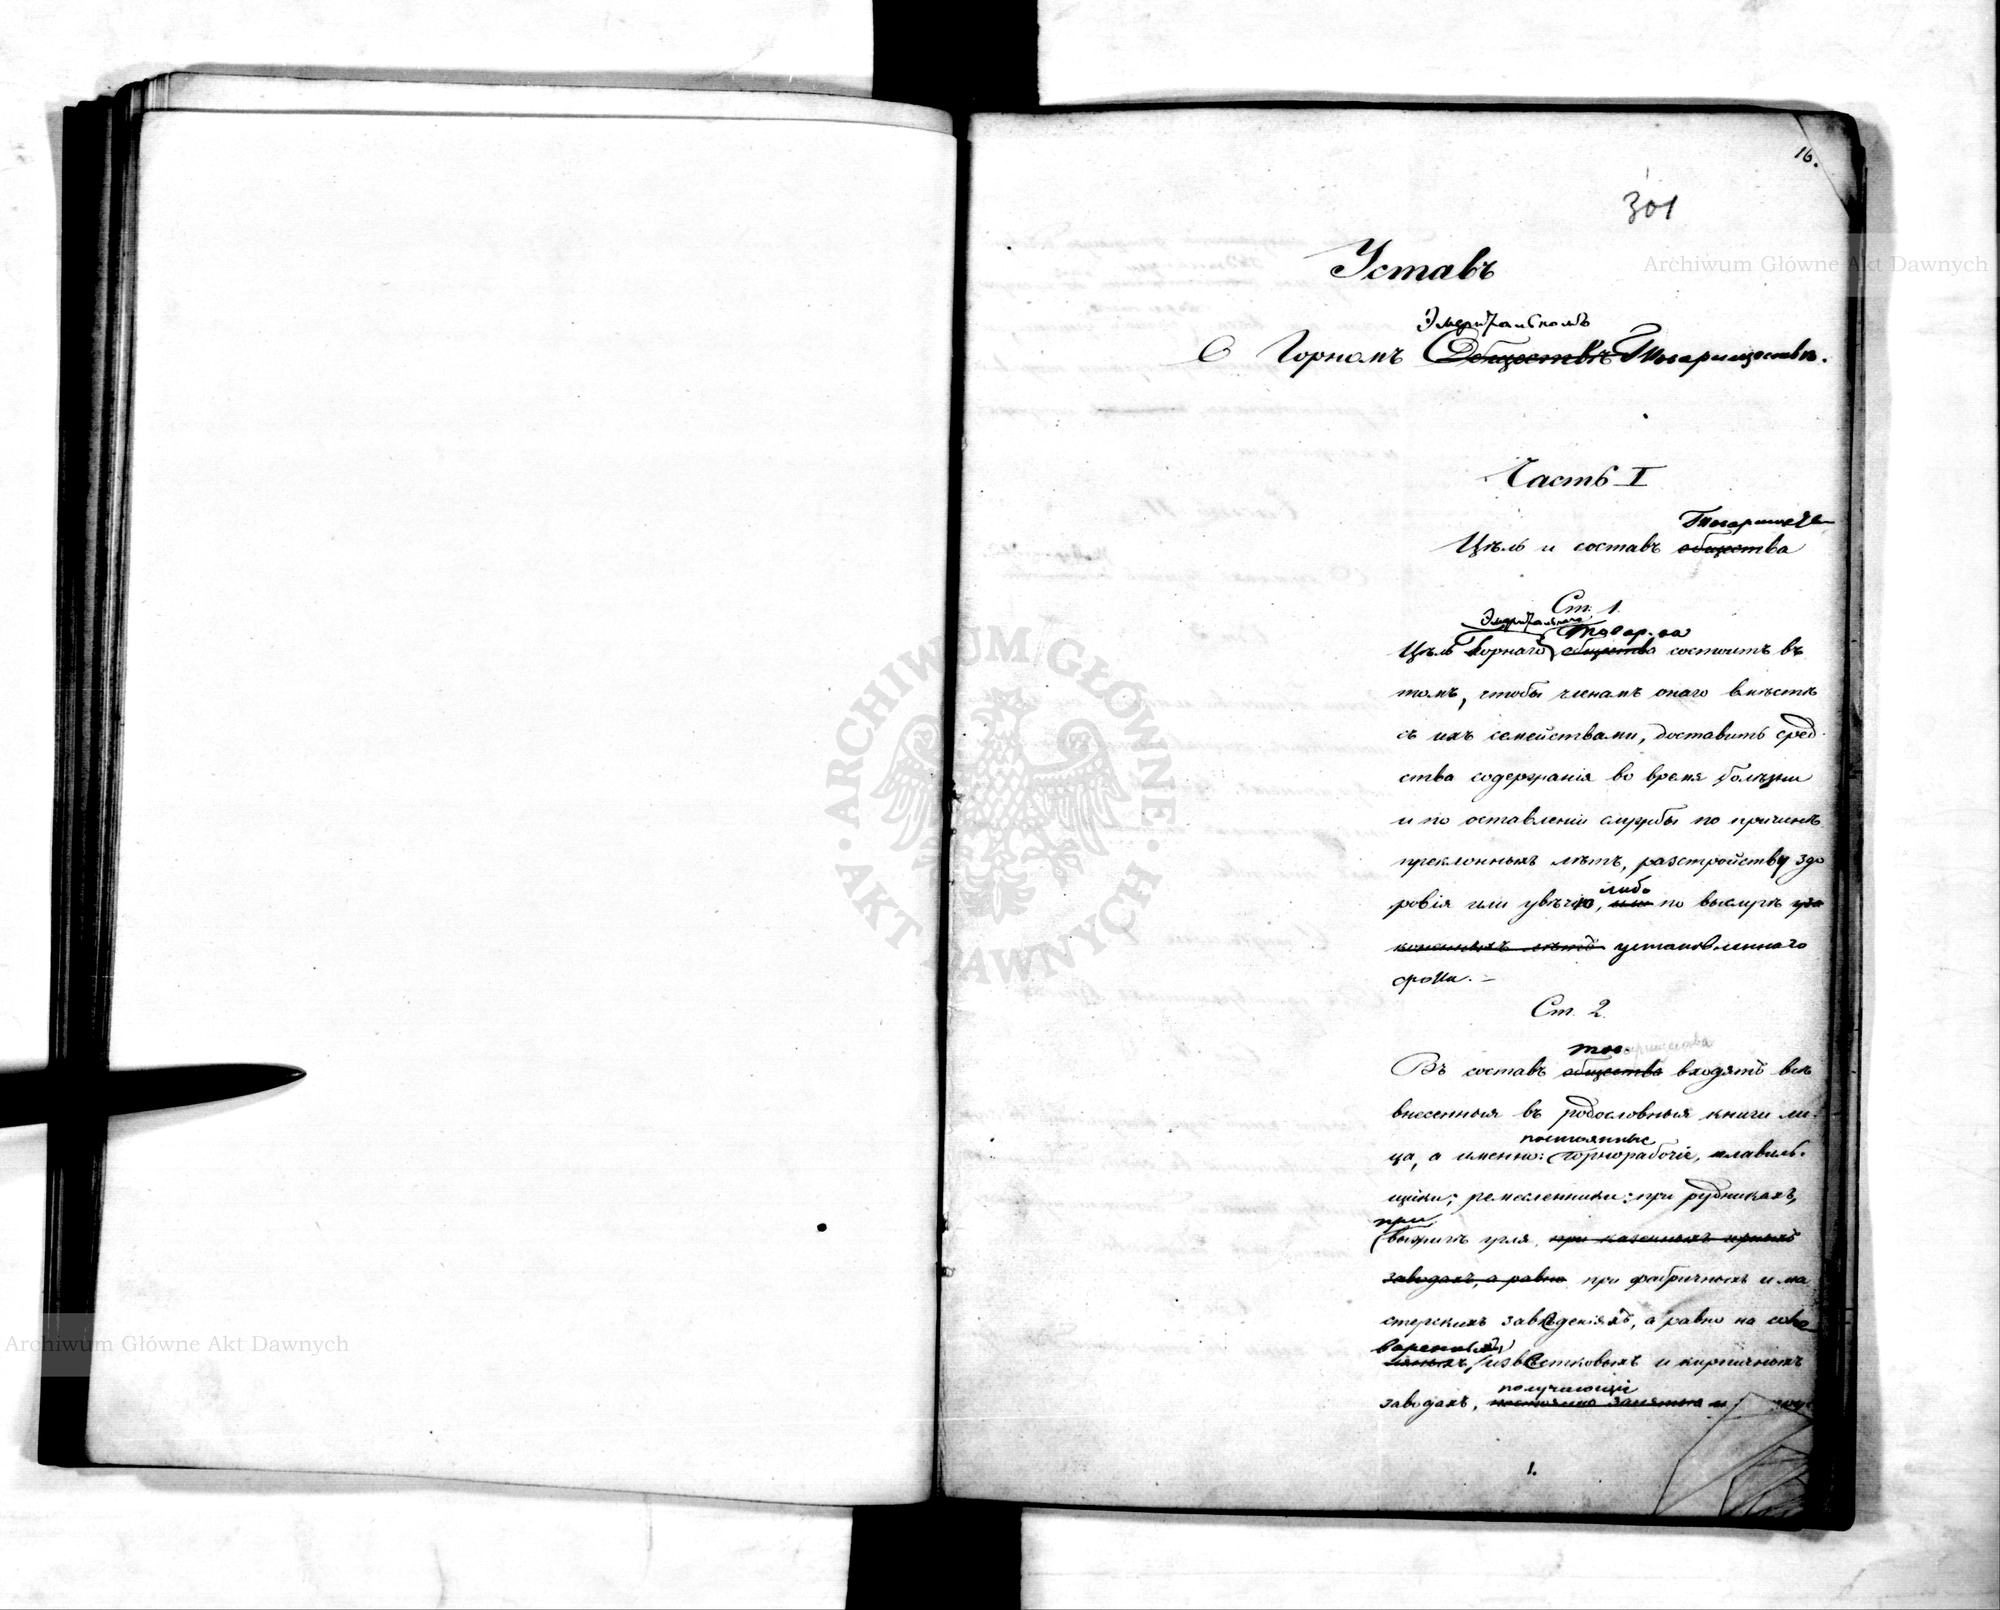 16.
301
Уставъ
Эмеритальномъ
О Горномъ Обществѣ Товариществѣ.
Часть I
Товарищества
Цѣль и составъ общества
Ст. 1.
Эмеритальнаго Товар-ва
Цѣль Горнаго общества состоитъ въ
томъ, чтобы членамъ онаго вмѣстѣ
съ ихъ семействами, доставить сред-
ства содержанія во время болѣзни
и по оставленіи службы по причинѣ
преклонныхъ лѣтъ, разстройству здо
ровія или увѣчію, или по выслугѣ уза
либо
коненныхъ лѣтъ установленнаго
срока. –
Ст. 2.
товарищества
Въ составъ общества входятъ всѣ
внесенныя въ родословныя книги ли-
постоянные
ца, а именно: горнорабочіе, плавиль-
щики; ремесленники: при рудникахъ,
при
выжигѣ угля, при казенныхъ горныхъ
заводахъ, а равно при фабричныхъ и ма
стерскихъ заведеніяхъ, а равно на соле
варенныхъ
известковыхъ и кирпичныхъ
получающіе
заводахъ, постоянно занятые и
1.
Archiwum Główne Akt Dawnych
ARCHIWUM GŁÓWNE · AKT DAWNYCH ·
Archiwum Główne Akt Dawnych